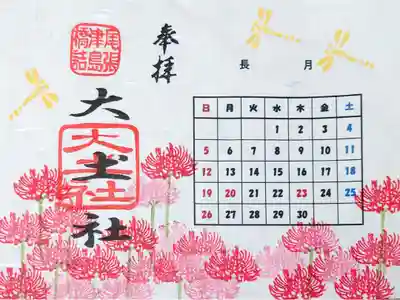 奉拝
尾張
津島
橋詰
大土社
大土社
長月
日 月 火 水 木 金 土
1 2 3 4
5 6 7 8 9 10 11
12 13 14 15 16 17 18
19 20 21 22 23 24 25
26 27 28 29 30